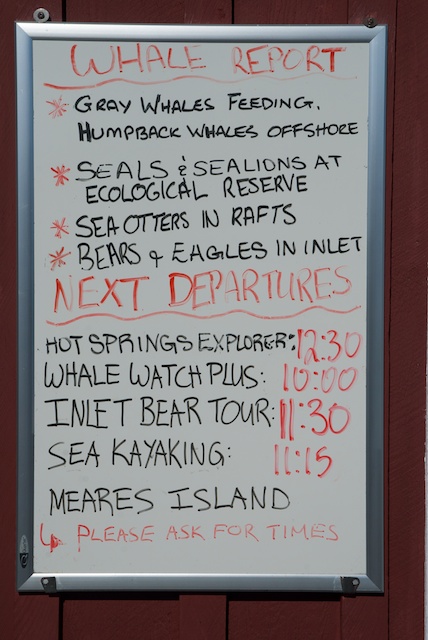 WHALE REPORT
* GRAY WHALES FEEDING.
HUMPBACK WHALES OFFSHORE
* SEALS & SEALIONS AT
ECOLOGICAL RESERVE
* SEA OTTERS IN RAFTS
* BEARS & EAGLES IN INLET
NEXT DEPARTURES
HOT SPRINGS EXPLORER: 12:30
WHALE WATCH PLUS: 10:00
INLET BEAR TOUR: 11:30
SEA KAYAKING: 11:15
MEARES ISLAND
↳ PLEASE ASK FOR TIMES